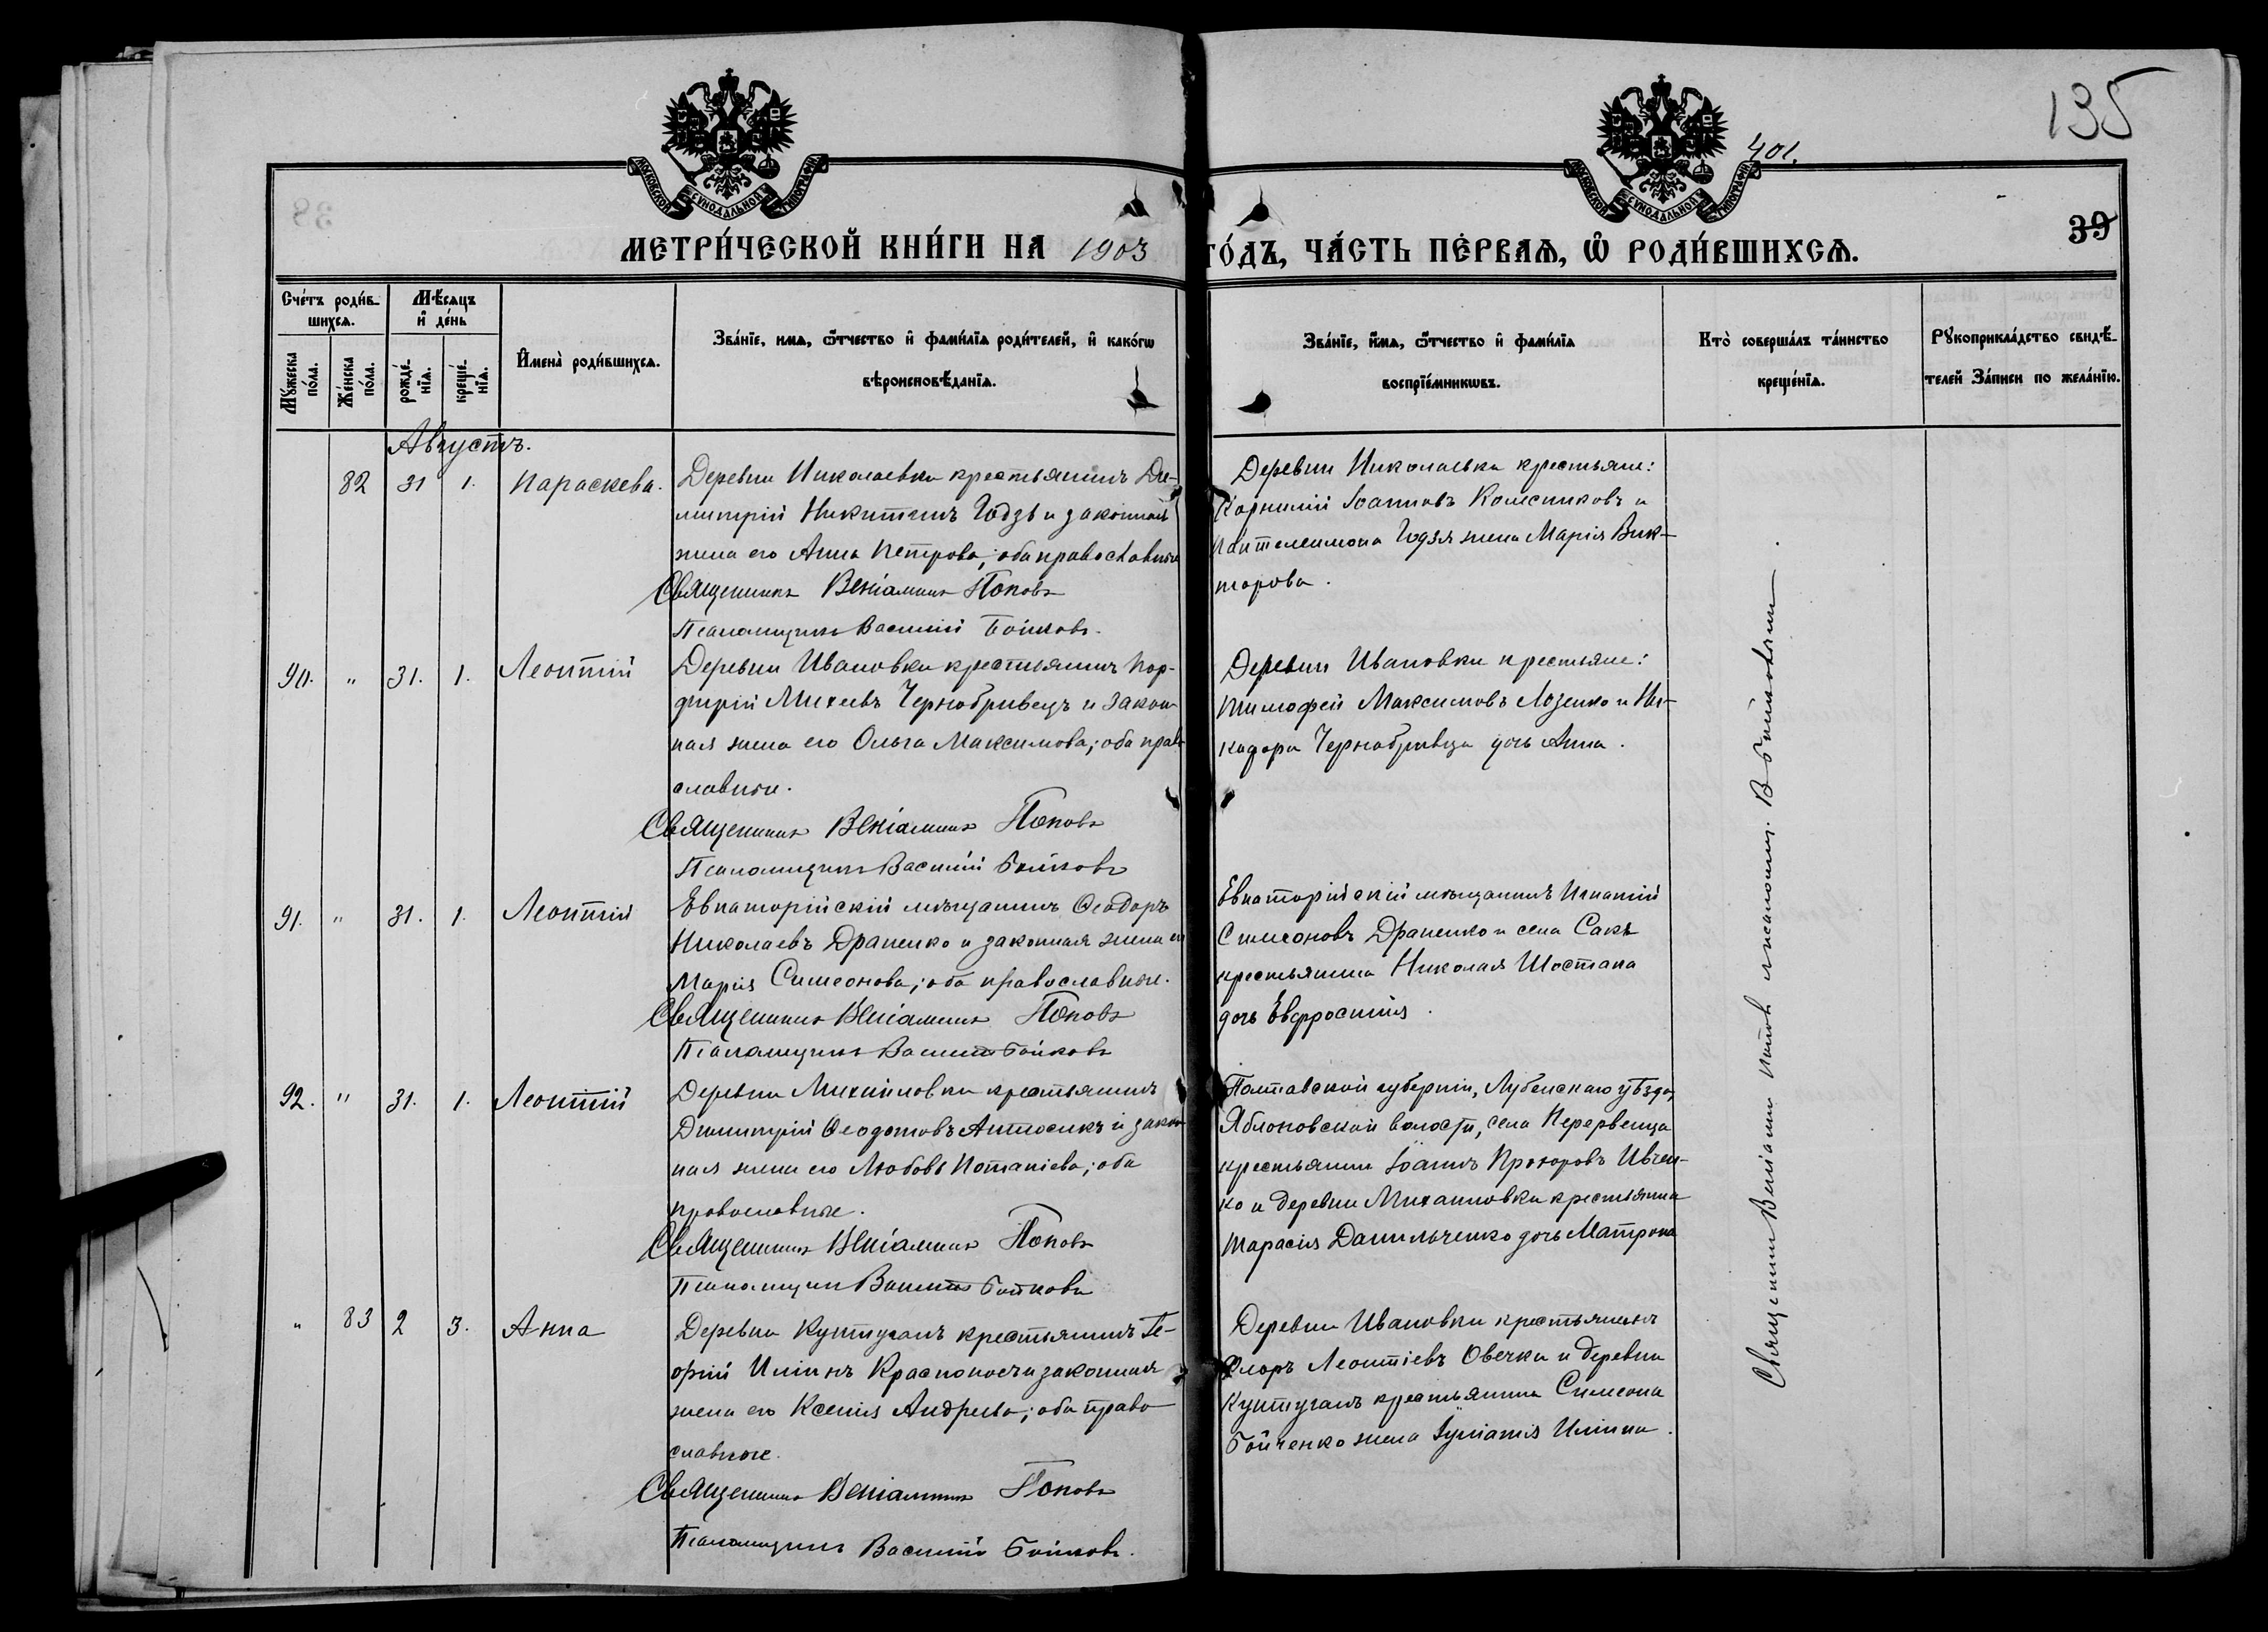 135
401.
МОСКОВСКОЙ СѴНОДАЛЬНОЙ ТИПОГРАФІИ
МОСКОВСКОЙ СѴНОДАЛЬНОЙ ТИПОГРАФІИ
39
МЕТРИ́ЧЕСКОЙ КНИ́ГИ НА 1903 ГО́ДЪ, ЧА́СТЬ ПЕ́РВАѦ, Ѡ҆ РОДИ́ВШИХСѦ.
Сче́тъ роди́в-
шихсѧ.
Мꙋ́жеска
по́ла.
Же́нска
по́ла.
Мѣ́сяцъ
и҆ де́нь
рожде́-
нїѧ.
креще́-
нїѧ.
И҆мена̀ роди́вшихсѧ.
Зва́нїе, и҆мѧ, ѻ҆́тчество и҆ фами́лїѧ роди́телей, и҆ како́гѡ
вѣроисповѣ́данїѧ.
Зва́нїе, и҆́мѧ, ѻ҆́тчество и҆ фами́лїѧ
воспрїе́мникѡвъ.
Кто̀ соверша́лъ та́инство
креще́нїѧ.
Рꙋкоприкла́дство свидѣ́-
телей За́писи по жела́нїю.
Августъ.
82 31 1. Параскева.
Деревни Николаевки крестьянинъ Ди-
митрій Никитинъ Годзь и законная
жена его Анна Петрова; оба православные
Священникъ Веніаминъ Поповъ
Псаломщикъ Василій Бойковъ.
Деревни Николаевки крестьяне:
Корнилій Іоанновъ Колесниковъ и
Пантелеимона Годзя жена Марія Вик-
торова.
90. " 31. 1. Леонтій
Деревни Ивановки крестьянинъ Пор-
фирій Михеевъ Чернобривецъ и закон-
ная жена его Ольга Максимова; оба право-
славные.
Священникъ Веніаминъ Поповъ
Псаломщикъ Василій Бойковъ
Деревни Ивановки крестьяне:
Тимофей Максимовъ Лозенко и Ни-
кафора Чернобривца дочь Анна.
91. " 31. 1. Леонтій
Евпаторійскій мѣщанинъ Ѳеодоръ
Николаевъ Драпенко и законная жена его
Марія Симеонова; оба православные.
Священникъ Веніаминъ Поповъ
Псаломщикъ Василій Бойковъ
Евпаторійскій мѣщанинъ Игнатій
Симеоновъ Драпенко и села Сакъ
крестьянина Николая Шостака
дочь Евфросинія.
92. " 31. 1. Леонтій
Деревни Михайловки крестьянинъ
Димитрій Ѳеодотовъ Антосикъ и закон-
ная жена его Любовь Потапіева; оба
православные.
Священникъ Веніаминъ Поповъ
Псаломщикъ Василій Бойковъ
Полтавской губерніи, Лубенскаго уѣзда,
Яблоновской волости, села Перервенца
крестьянинъ Іоаннъ Прохоровъ Ивчен-
ко и деревни Михайловки крестьянина
Тарасія Данильченко дочь Матрона
" 83 2 3. Анна
Деревни Кунтуганъ крестьянинъ Ге-
оргій Илиинъ Красноносъ и законная
жена его Ксенія Андреева; оба право-
славные.
Священникъ Веніаминъ Поповъ
Псаломщикъ Василій Бойковъ.
Деревни Ивановки крестьянинъ
Флоръ Леонтіевъ Овечка и деревни
Кунтуганъ крестьянина Симеона
Бойченко жена Іуліанія Илиина.
Священникъ Веніаминъ Поповъ съ псаломщ. В. Бойковымъ.